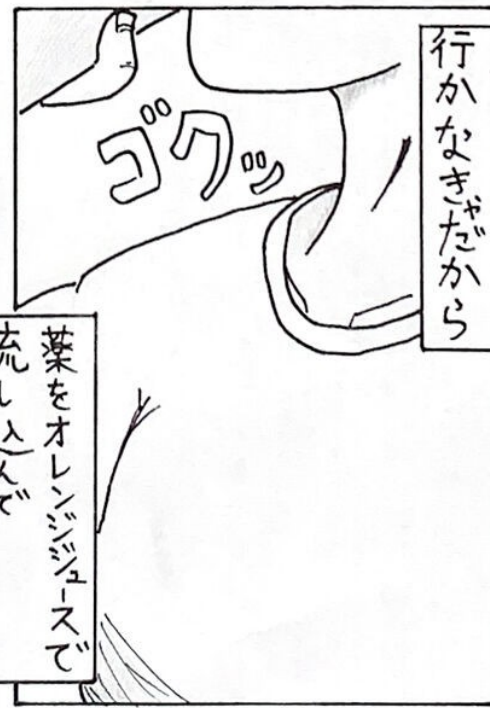 行かなきゃだから
ゴクッ
薬をオレンジジュースで
流し込んで